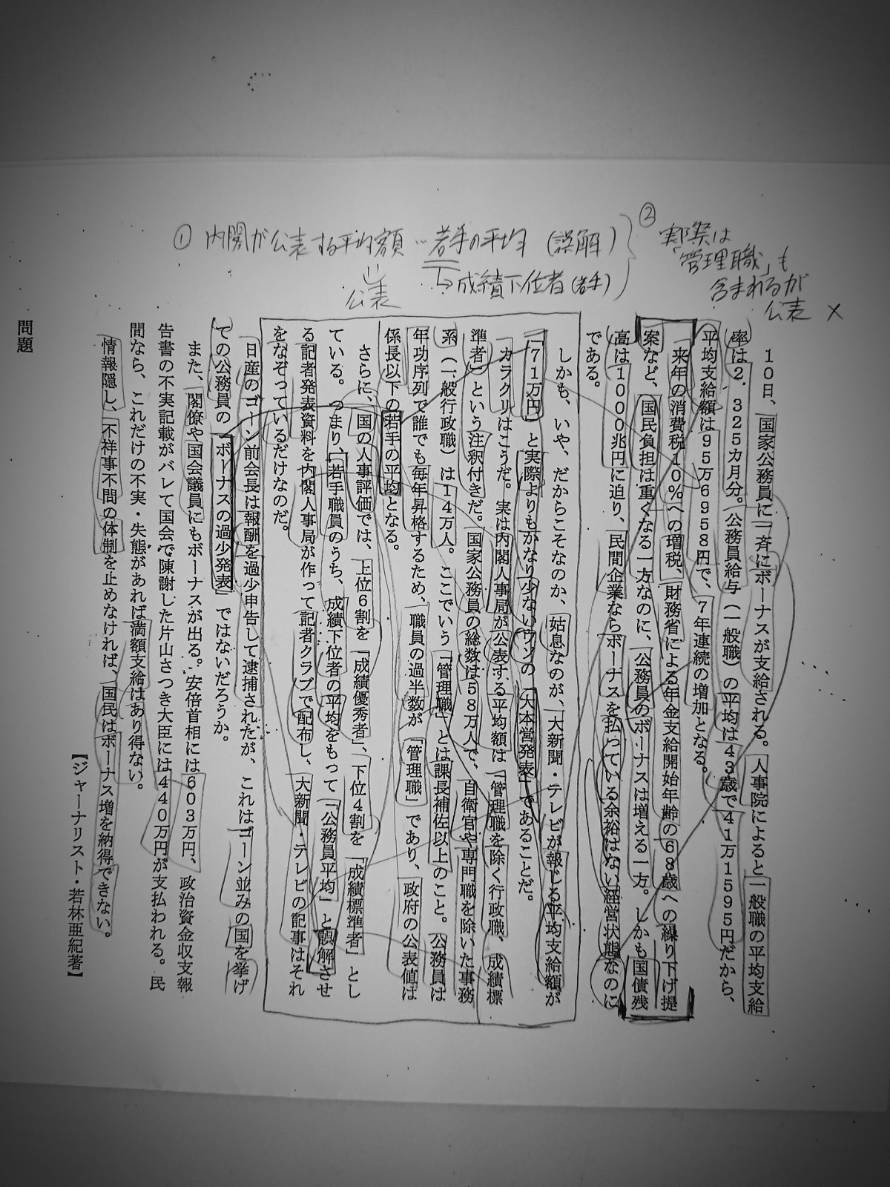 ① 内閣が公表する平均額…若手の平均(誤解)
公表
↳成績下位者(若手)
② 実際は
「管理職」も
含まれるが
公表 ×
10日、国家公務員に一斉にボーナスが支給される。人事院によると一般職の平均支給
率は2.325カ月分。公務員給与(一般職)の平均は43歳で41万1595円だから、
平均支給額は95万6958円で、7年連続の増加となる。
来年の消費税10%への増税、財務省による年金支給開始年齢の68歳への繰り下げ提
案など、国民負担は重くなる一方なのに、公務員のボーナスは増える一方。しかも国債残
高は1000兆円に迫り、民間企業ならボーナスを払っている余裕はない経営状態なのに
である。
しかも、いや、だからこそなのか、姑息なのが、大新聞・テレビが報じる平均支給額が
「71万円」と実際よりもかなり少ないウソの「大本営発表」であることだ。
カラクリはこうだ。実は内閣人事局が公表する平均額は「管理職を除く行政職、成績標
準者」という注釈付きだ。国家公務員の総数は58万人で、自衛官や専門職を除いた事務
系(一般行政職)は14万人。ここでいう「管理職」とは課長補佐以上のこと。公務員は
年功序列で誰でも毎年昇格するため、職員の過半数が「管理職」であり、政府の公表値は
係長以下の若手の平均となる。
さらに、国の人事評価では、上位6割を「成績優秀者」、下位4割を「成績標準者」とし
ている。つまり「若手職員のうち、成績下位者の平均をもって「公務員平均」と誤解させ
る記者発表資料を内閣人事局が作って記者クラブで配布し、大新聞・テレビの記事はそれ
をなぞっているだけなのだ。
日産のゴーン前会長は報酬を過少申告して逮捕されたが、これはゴーン並みの国を挙げ
ての公務員の「ボーナスの過少発表」ではないだろうか。
また、閣僚や国会議員にもボーナスが出る。安倍首相には603万円、政治資金収支報
告書の不実記載がバレて国会で陳謝した片山さつき大臣には440万円が支払われる。民
間なら、これだけの不実・失態があれば満額支給はあり得ない。
情報隠し、不祥事不問の体制を止めなければ、国民はボーナス増を納得できない。
【ジャーナリスト・若林亜紀著】
問題